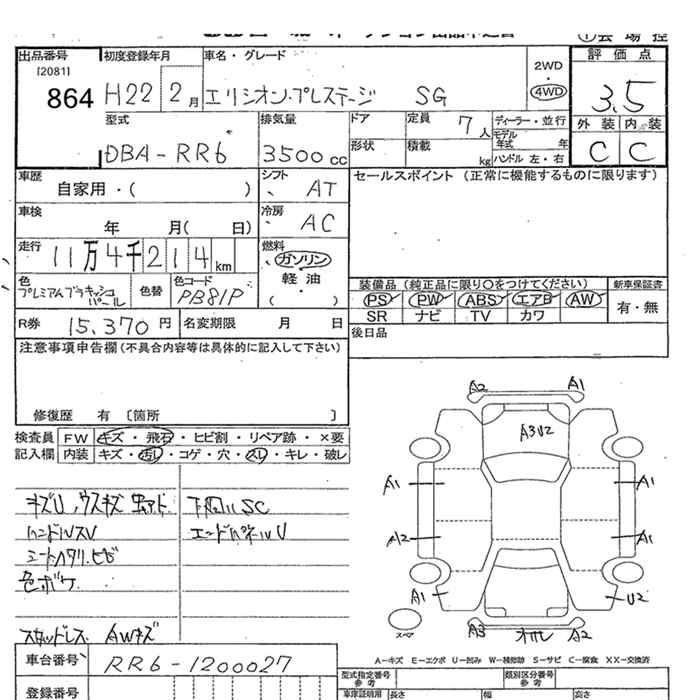 出品番号 初度登録年月 車名・グレード 2WD 評価点
[2081] ・
864 H22 2月 エリシオン・プレステージ SG 4WD 3.5
型式 排気量 ドア 定員 7人 ディーラー・並行 外装 内装
モデル年式 年
DBA-RR6 3500cc 形状 積載 kg ハンドル 左・右 C C
車歴 シフト セールスポイント (正常に機能するものに限ります)
自家用・( ) AT
車検 冷房
年 月( 日) AC
走行 燃料
11万4千214km ガソリン
軽油
色 色替 色コード ・ 装備品 (純正品に限り○をつけてください) 新車保証書
プレミアムブラキッシュパール PB81P ( ) PS PW ABS エアB AW 有・無
R券 15,370円 名変期限 月 日 SR ナビ TV カワ
注意事項申告欄(不具合内容等は具体的に記入して下さい) 後日品
修復歴 有 〔箇所 〕
検査員 FW キズ・飛石・ヒビ割・リペア跡・×要
記入欄 内装 キズ・汚レ・コゲ・穴・スレ・キレ・破レ
A2 A1
A3U2
A1 A1
A2 A1
A1 U2
A3 A2
スペア
キズU、ウスキズ 下廻リSC
ハンドルスレ エンドパネルU
シートハタリ、ヒビ
色ボケ
スタッドレス AWキズ
A-キズ E-エクボ U-凹み W-補修跡 S-サビ C-腐食 XX-交換済
車台番号 RR6-1200027
型式指定番号 参考 類別区分番号 参考
登録番号 車庫証明用 参考 長さ 幅 高さ